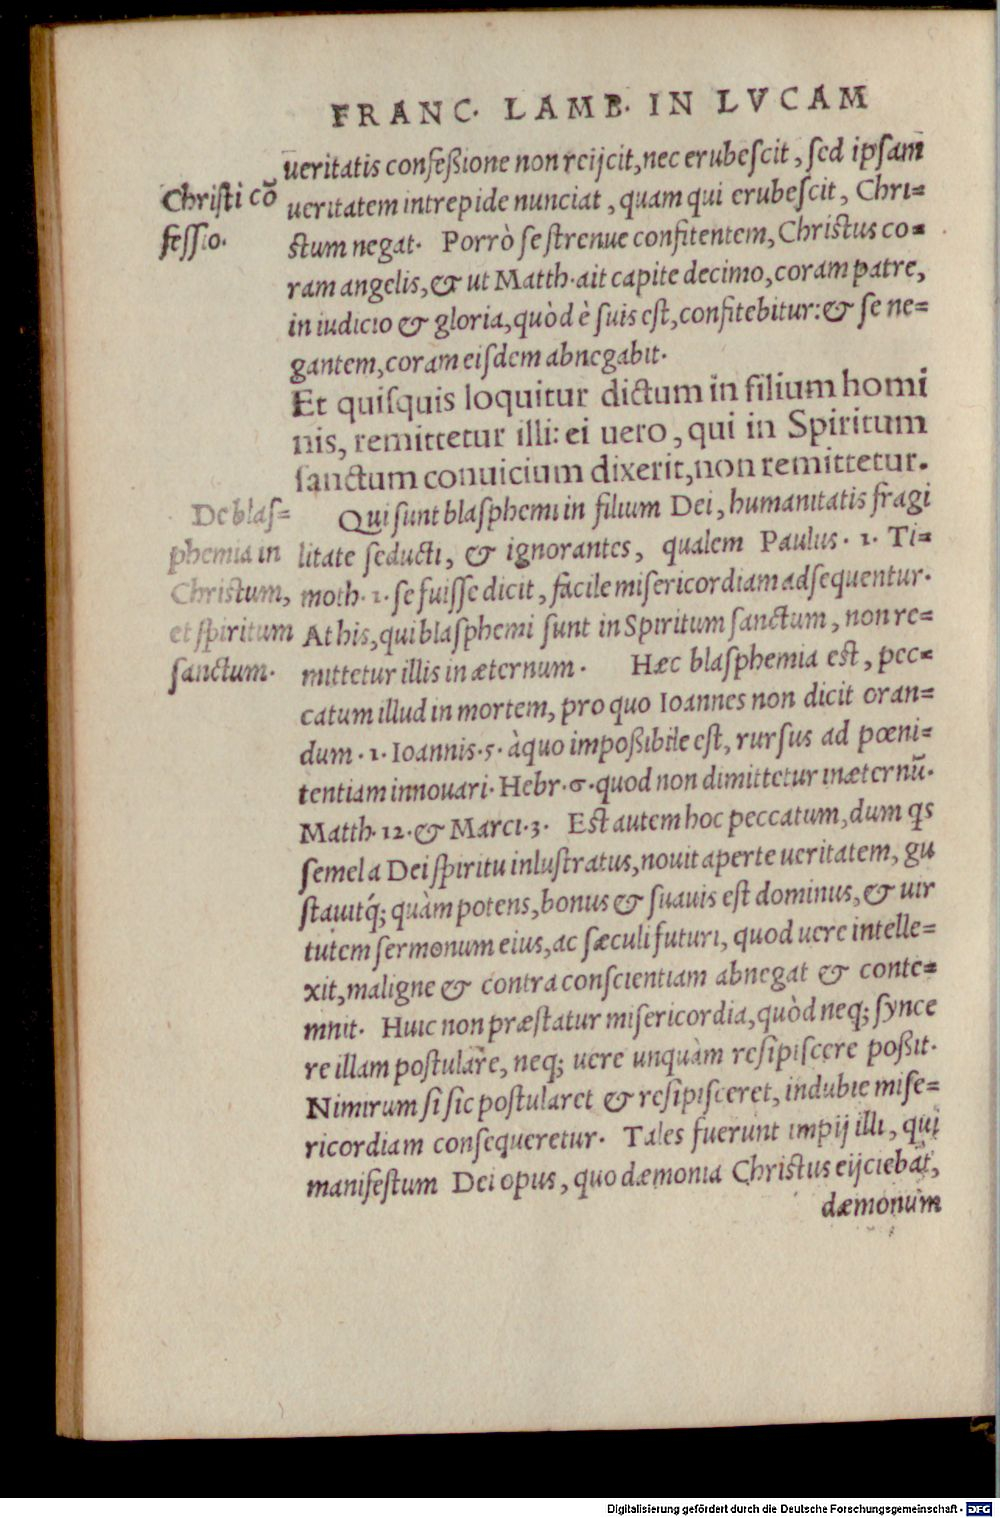 FRANC. LAMB. IN LVCAM
ueritatis confeßione non reijcit, nec erubescit, sed ipsam
ueritatem intrepide nunciat, quam qui erubescit, Chri=
stum negat. Porrò se strenue confitentem, Christus co=
ram angelis, & ut Matth. ait capite decimo, coram patre,
in iudicio & gloria, quòd è suis est, confitebitur: & se ne=
gantem, coram eisdem abnegabit.
Christi cõ
fessio.
Et quisquis loquitur dictum in filium homi
nis, remittetur illi: ei uero, qui in Spiritum
sanctum conuicium dixerit, non remittetur.
De blas=
phemia in
Christum,
et spiritum
sanctum.
Qui sunt blasphemi in filium Dei, humanitatis fragi
litate seducti, & ignorantes, qualem Paulus. 1. Ti=
moth. 1. se fuisse dicit, facile misericordiam adsequentur.
At his, qui blasphemi sunt in Spiritum sanctum, non re=
mittetur illis in æternum. Hæc blasphemia est, pec=
catum illud in mortem, pro quo Ioannes non dicit oran=
dum. 1. Ioannis. 5. à quo impoßibile est, rursus ad pœni=
tentiam innouari. Hebr. 6. quod non dimittetur in æternũ.
Matth. 12. & Marci. 3. Est autem hoc peccatum, dum qs
semel a Dei spiritu inlustratus, nouit aperte ueritatem, gu
stauitq́; quàm potens, bonus & suauis est dominus, & uir
tutem sermonum eius, ac sæculi futuri, quod uere intelle=
xit, maligne & contra conscientiam abnegat & conte=
mnit. Huic non præstatur misericordia, quòd neq; synce
re illam postulare, neq; uere unquàm resipiscere poßit.
Nimirum si sic postularet & resipisceret, indubie mise=
ricordiam consequeretur. Tales fuerunt impij illi, qui
manifestum Dei opus, quo dæmonia Christus eijciebat,
dæmonum
Digitalisierung gefördert durch die Deutsche Forschungsgemeinschaft - DFG